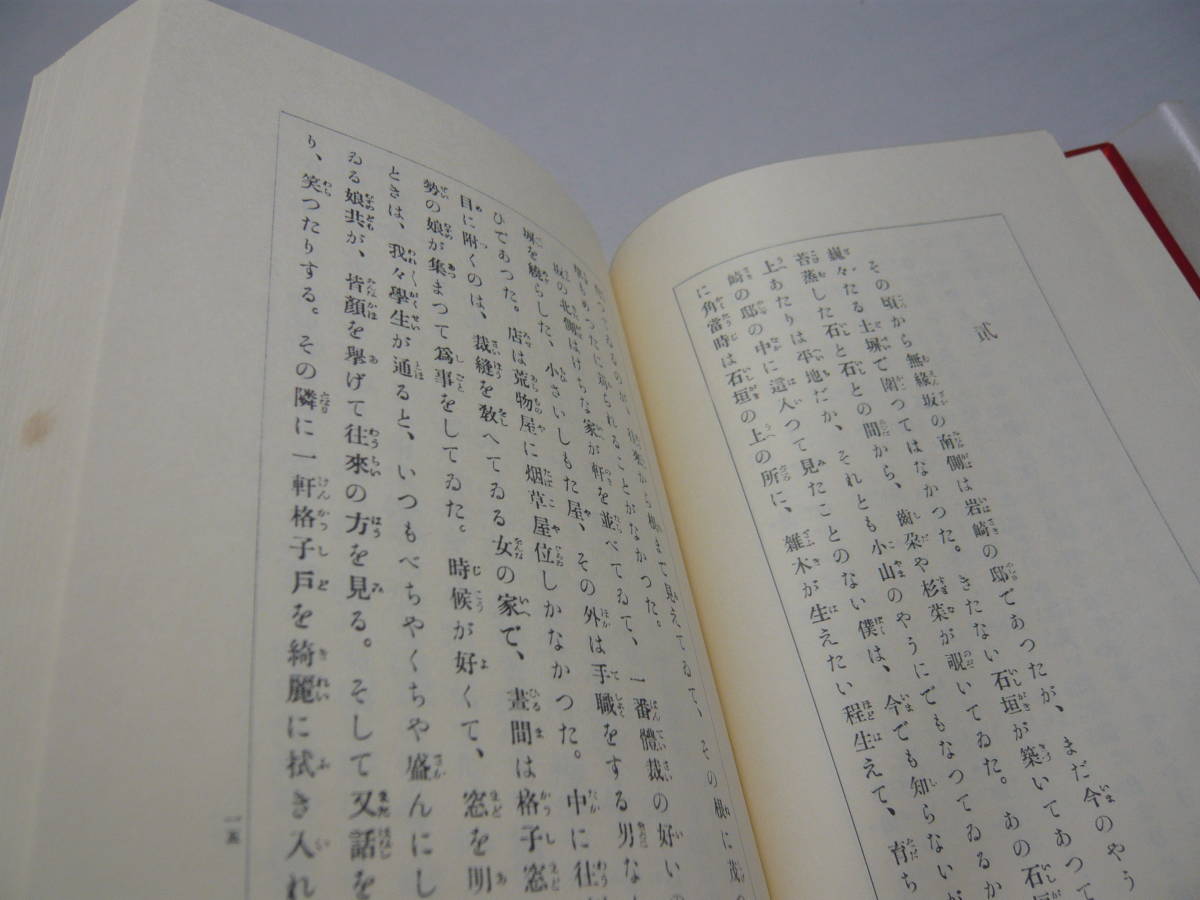 貳
その頃から無縁坂の南側は岩崎の邸であつたが、まだ今のやう
巍々たる土塀で圍つてはなかつた。きたない石垣が築いてあつて
苔蒸した石と石との間から、齒朶や杉菜が覗いてゐた。あの石垣
上あたりは平地だか、それとも小山のやうにでもなつてゐるか
崎の邸の中に這入つて見たことのない僕は、今でも知らないが
に角當時は石垣の上の所に、雜木が生えたい程生えて、育ち
根まで見えてゐて、その根に茂
られることがなかつた。
坂の北側はけちな家が軒を並べてゐて、一番體裁の好いの
塀を繞らした、小さいしもた屋、その外は手職をする男な
ひであつた。店は荒物屋に烟草屋位しかなかつた。中に往
目に附くのは、裁縫を敎へてゐる女の家で、晝間は格子窓
勢の娘が集まつて爲事をしてゐた。時候が好くて、窓を明
ときは、我々學生が通ると、いつもべちやくちや盛んにし
ゐる娘共が、皆顏を擧げて往來の方を見る。そして又話を
り、笑つたりする。その隣に一軒格子戶を綺麗に拭き入れ
一五